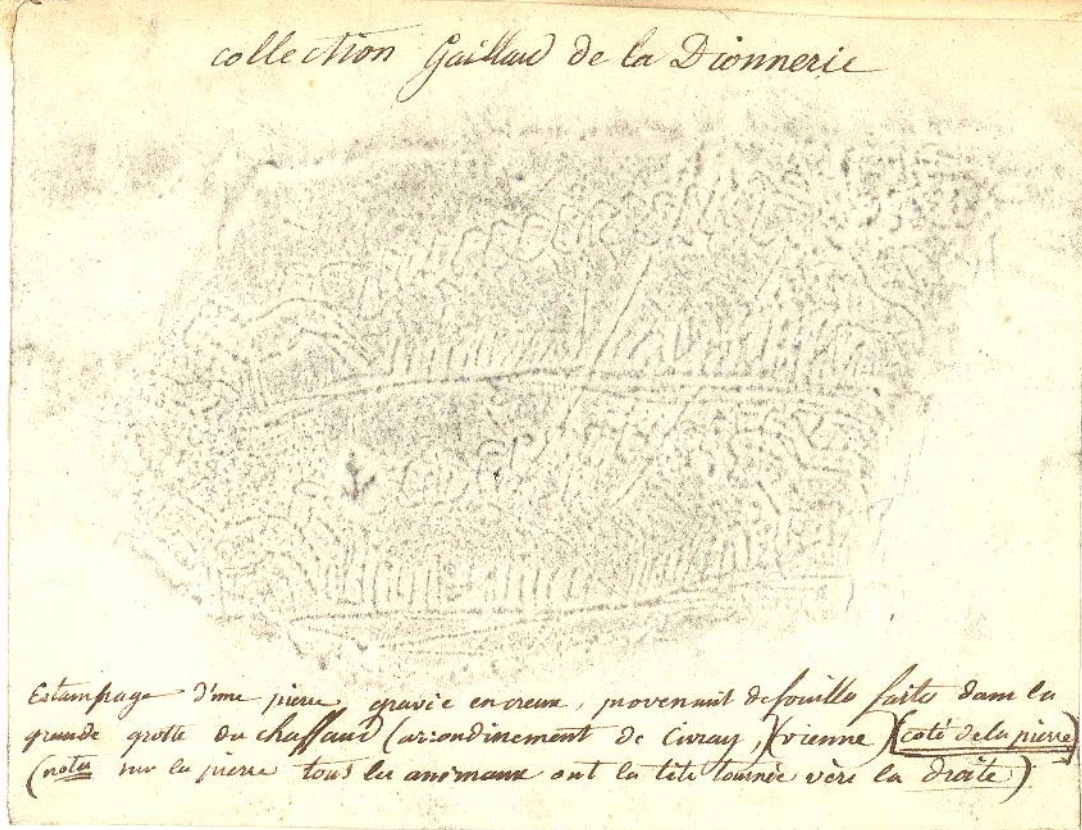 collection Gaillard de la Dionnerie
Estampage d'une pierre gravée en creux, provenant de fouilles faites dans la
grande grotte du chaffaud (arrondinement de Civray,) (vienne) (coté de la pierre)
(notez sur la pierre tous les animaux ont la tête tournée vère la droite)